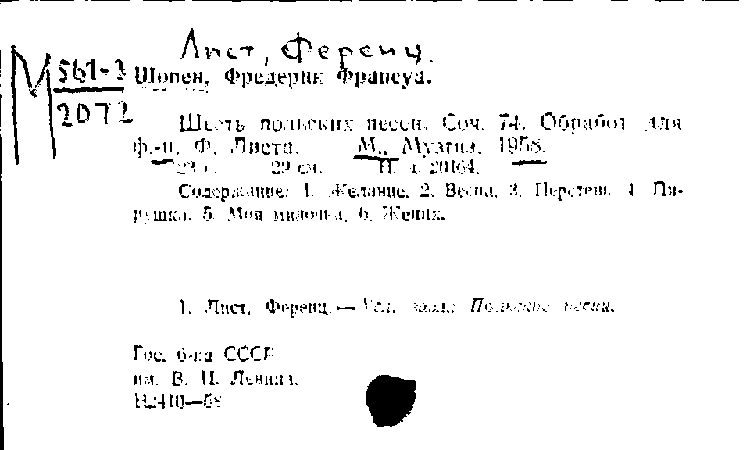 Лист, Ференц.
М 561-3
2072
Шопен, Фредерик Франсуа.
Шесть польских песен. Соч. 74. Обработ. для
ф.-п. Ф. Листа. М., Музгиз, 1958.
23 с. 29 см. Н. д. 20164.
Содержание: 1. Желание. 2. Весна. 3. Перстень. 4. Пи-
рушка. 5. Моя милочка. 6. Жених.
1. Лист, Ференц.— Польские песни.
Гос. б-ка СССР
им. В. И. Ленина.
58